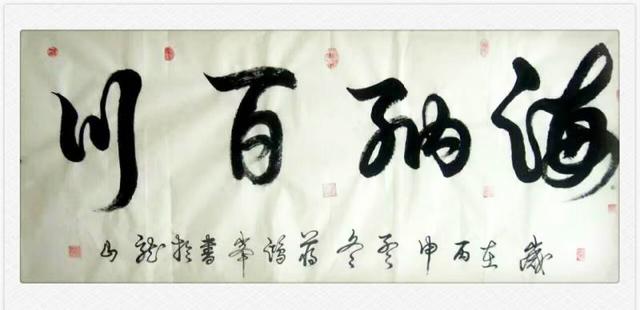 海納百川
歲在丙申冬蔣峯書於龍山